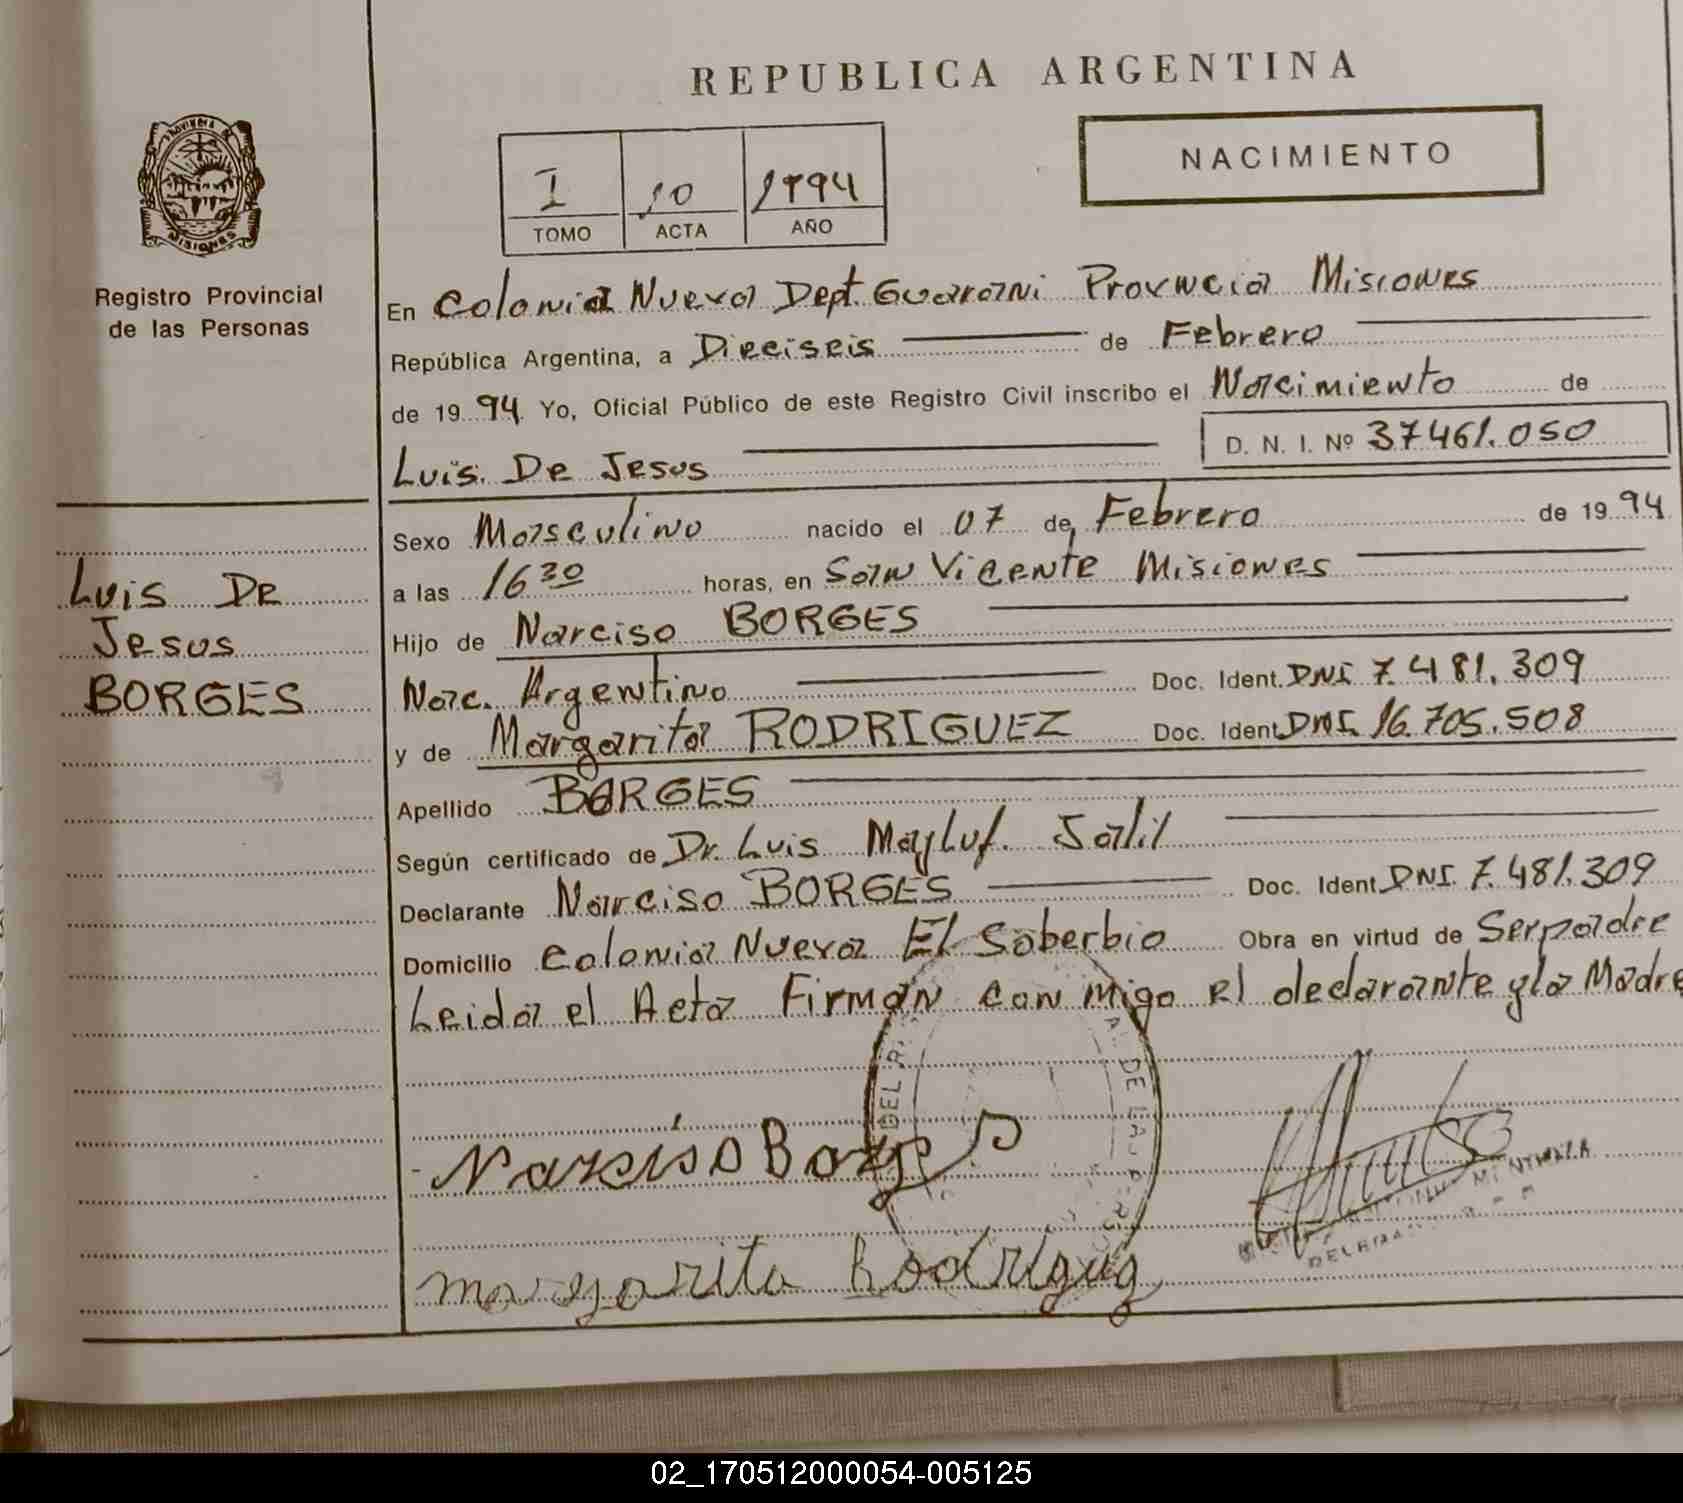 REPUBLICA ARGENTINA
PROVINCIA DE
MISIONES
Registro Provincial
de las Personas
I 10 1994
TOMO ACTA AÑO
NACIMIENTO
En Colonia Nueva Dept. Guarani Provincia Misiones
República Argentina, a Dieciseis de Febrero
de 19 94 Yo, Oficial Público de este Registro Civil inscribo el Nacimiento de
Luis De Jesus D. N. I. Nº 37461.050
Sexo Masculino nacido el 07 de Febrero de 19 94
a las 16 30 horas, en San Vicente Misiones
Hijo de Narciso BORGES
Nac. Argentino Doc. Ident. DNI 7.481.309
y de Margarita RODRIGUEZ Doc. Ident DNI. 16.705.508
Apellido BORGES
Según certificado de Dr. Luis Mayluf. Jalil
Declarante Narciso BORGES Doc. Ident DNI. 7.481.309
Domicilio Colonia Nueva El Soberbio Obra en virtud de Ser padre
Leida el Acta Firman con migo el declarante y la Madre
Luis De
Jesus
BORGES
Narciso Borges
margarita Rodriguez
DE LA
02_170512000054-005125